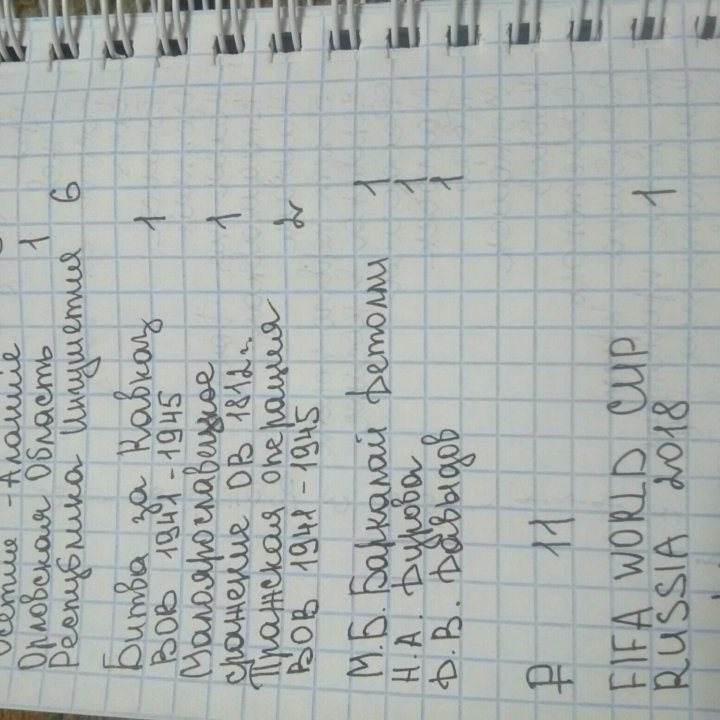 Осетие - Алание
Орловская Область 1
Республика Ингушетия 6
Битва за Кавказ 1
ВОВ 1941-1945
Малоярославецкое 1
сражение ОВ 1812г.
Пражская операция 2
ВОВ 1941-1945
М.Б. Барклай де Толли 1
Н.А. Дурова 1
Д.В. Давыдов 1
₽ 11
FIFA WORLD CUP
RUSSIA 2018 1